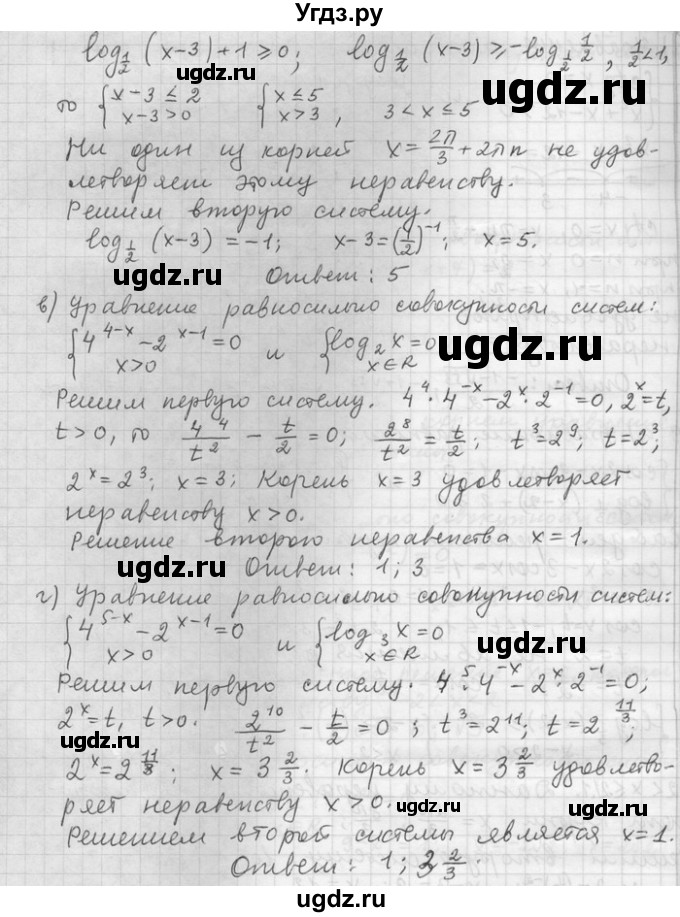 Угдз.ру
log_{1/2} (x-3)+1 ≥ 0; log_{1/2} (x-3) ≥ -log_{1/2} 1/2, 1/2 < 1,
ugdz.ru
то { x-3 ≤ 2 { x ≤ 5
x-3 > 0 x > 3, 3 < x ≤ 5
ugdz.ru
Ни один из корней x = 2π/3 + 2πn не удов-
летворяет этому неравенству.
Решим вторую систему.
log_{1/2} (x-3) = -1; x-3 = (1/2)^{-1}; x = 5.
ugdz.ru
Ответ: 5
в) Уравнение равносильно совокупности систем:
{ 4^{4-x} - 2^{x-1} = 0 и { log_2 x = 0
x > 0 x ∈ R
ugdz.ru
Решим первую систему. 4^4 · 4^{-x} - 2^x · 2^{-1} = 0, 2^x = t,
t > 0, то 4^4/t^2 - t/2 = 0; 2^8/t^2 = t/2; t^3 = 2^9; t = 2^3;
2^x = 2^3; x = 3; Корень x = 3 удовлетворяет
неравенству x > 0.
Решение второго неравенства x = 1.
ugdz.ru
Ответ: 1; 3
г) Уравнение равносильно совокупности систем:
{ 4^{5-x} - 2^{x-1} = 0 и { log_3 x = 0
x > 0 x ∈ R
ugdz.ru
Решим первую систему. 4^5 · 4^{-x} - 2^x · 2^{-1} = 0;
2^x = t, t > 0. 2^{10}/t^2 - t/2 = 0; t^3 = 2^{11}; t = 2^{11/3};
ugdz.ru
2^x = 2^{11/3}; x = 3 2/3. Корень x = 3 2/3 удовлетво-
ugdz.ru
ряет неравенству x > 0.
ugdz.ru
Решением второй системы является x = 1.
Ответ: 1; 3 2/3.
ugdz.ru
ugdz.ru